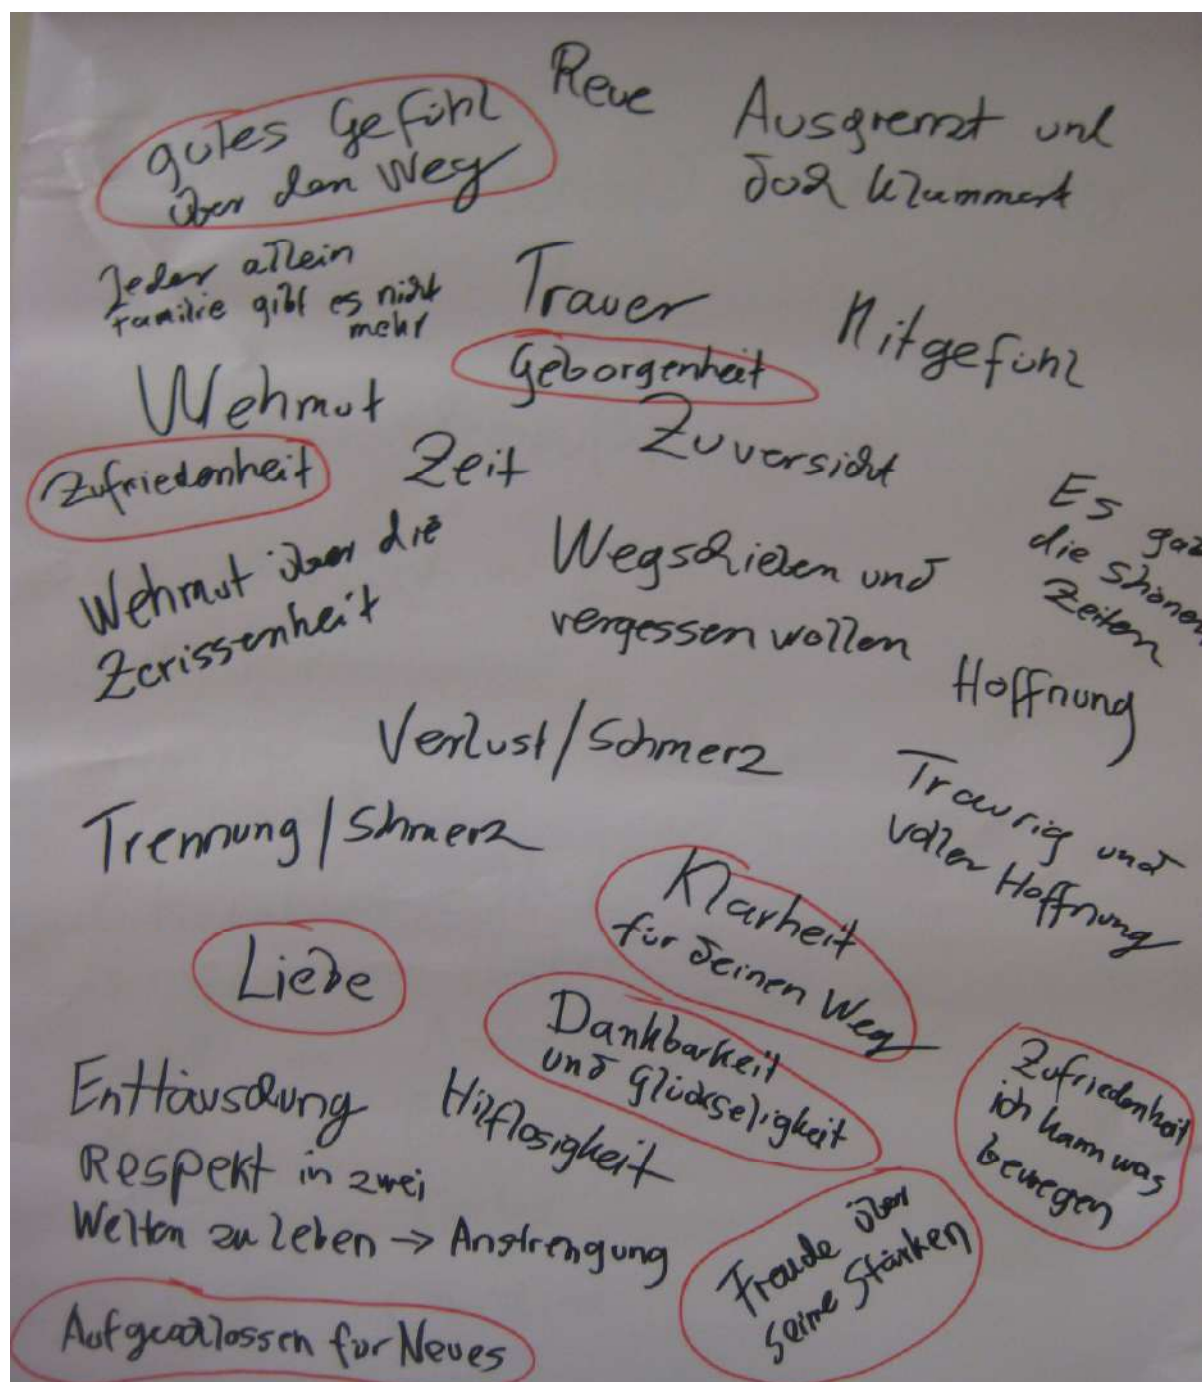 gutes Gefühl
über den Weg
Reue
Ausgrenzt und
doch klammert
Jeder allein
Familie gibt es nicht
mehr
Trauer
Mitgefühl
Geborgenheit
Wehmut
Zuversicht
Zufriedenheit
Zeit
Es gab
die shönen
Zeiten
Wehmut über die
Zerissenheit
Wegschieben und
vergessen wollen
Hoffnung
Verlust/Schmerz
Traurig und
voller Hoffnung
Trennung/Shmerz
Klarheit
für deinen Weg
Liebe
Dankbarkeit
und Glückseligkeit
Zufriedenheit
ich kann was
bewegen
Enttäuschung
Hilflosigkeit
Respekt in zwei
Welten zu leben → Anstrengung
Freude über
seine Stärken
Aufgeschlossen für Neues